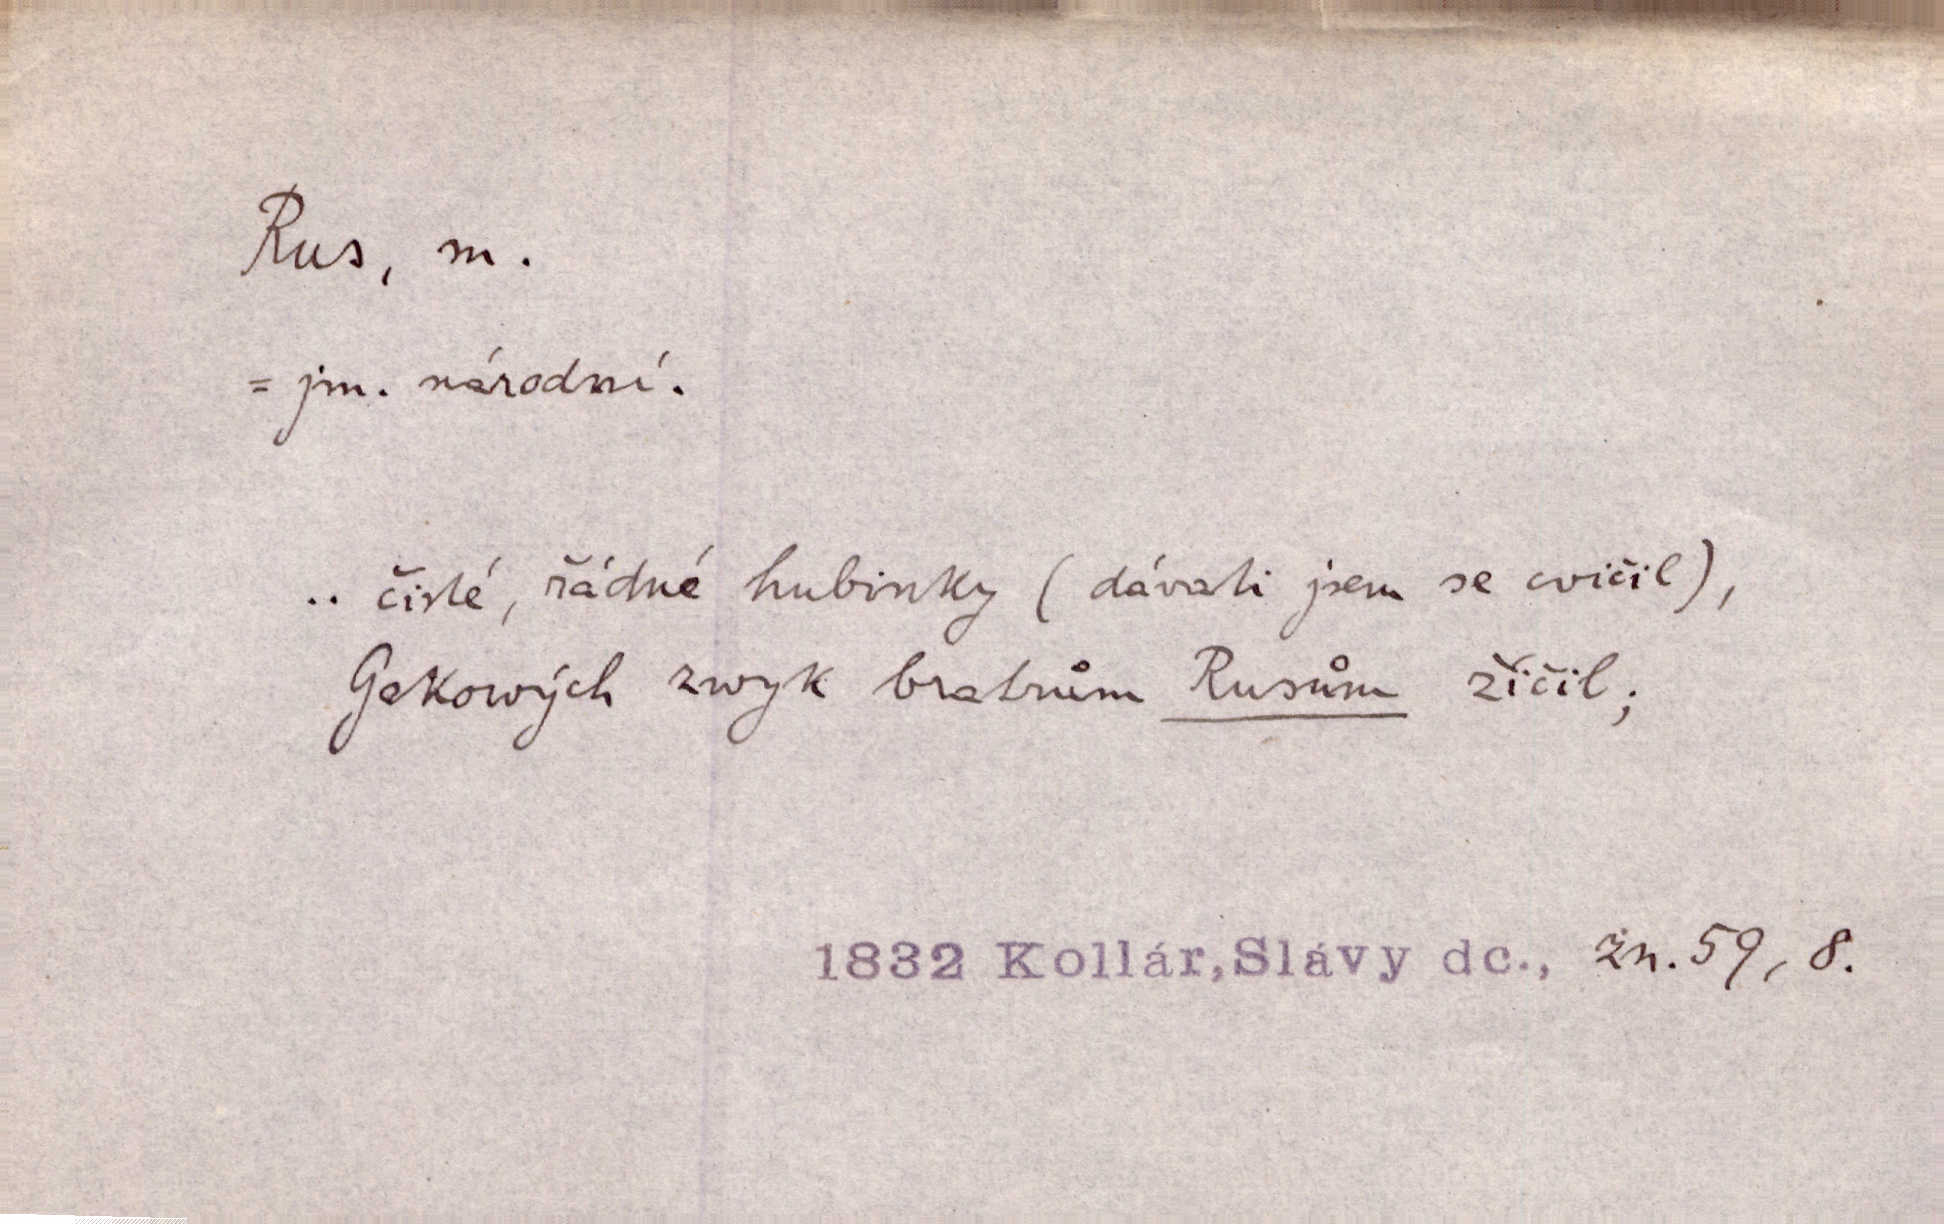 Rus, m.
= jm. národní.
.. čisté, řádné hubinky (dávati jsem se cvičil),
Gakowých zwyk bratrům Rusům žičil;
1832 Kollár,Slávy dc., zn. 59, 8.